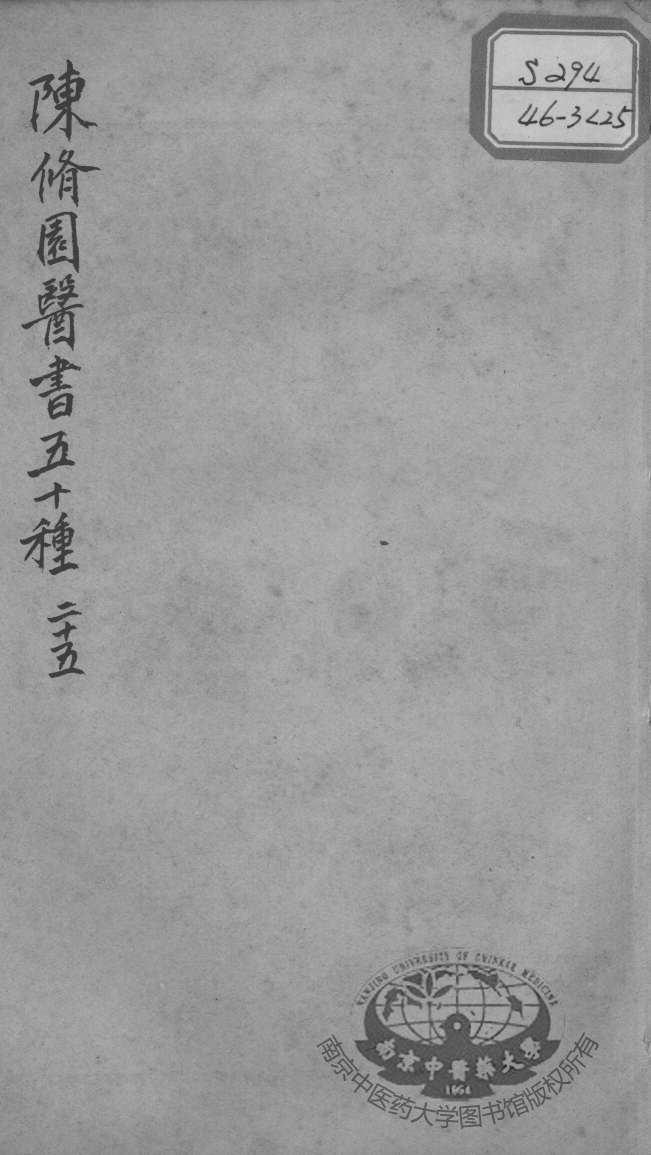 陳脩園醫書五十種 二十五
S294
46-3<25
NANJING UNIVERSITY OF CHINESE MEDICINE
南京中醫藥大學
1954
南京中医药大学图书馆版权所有